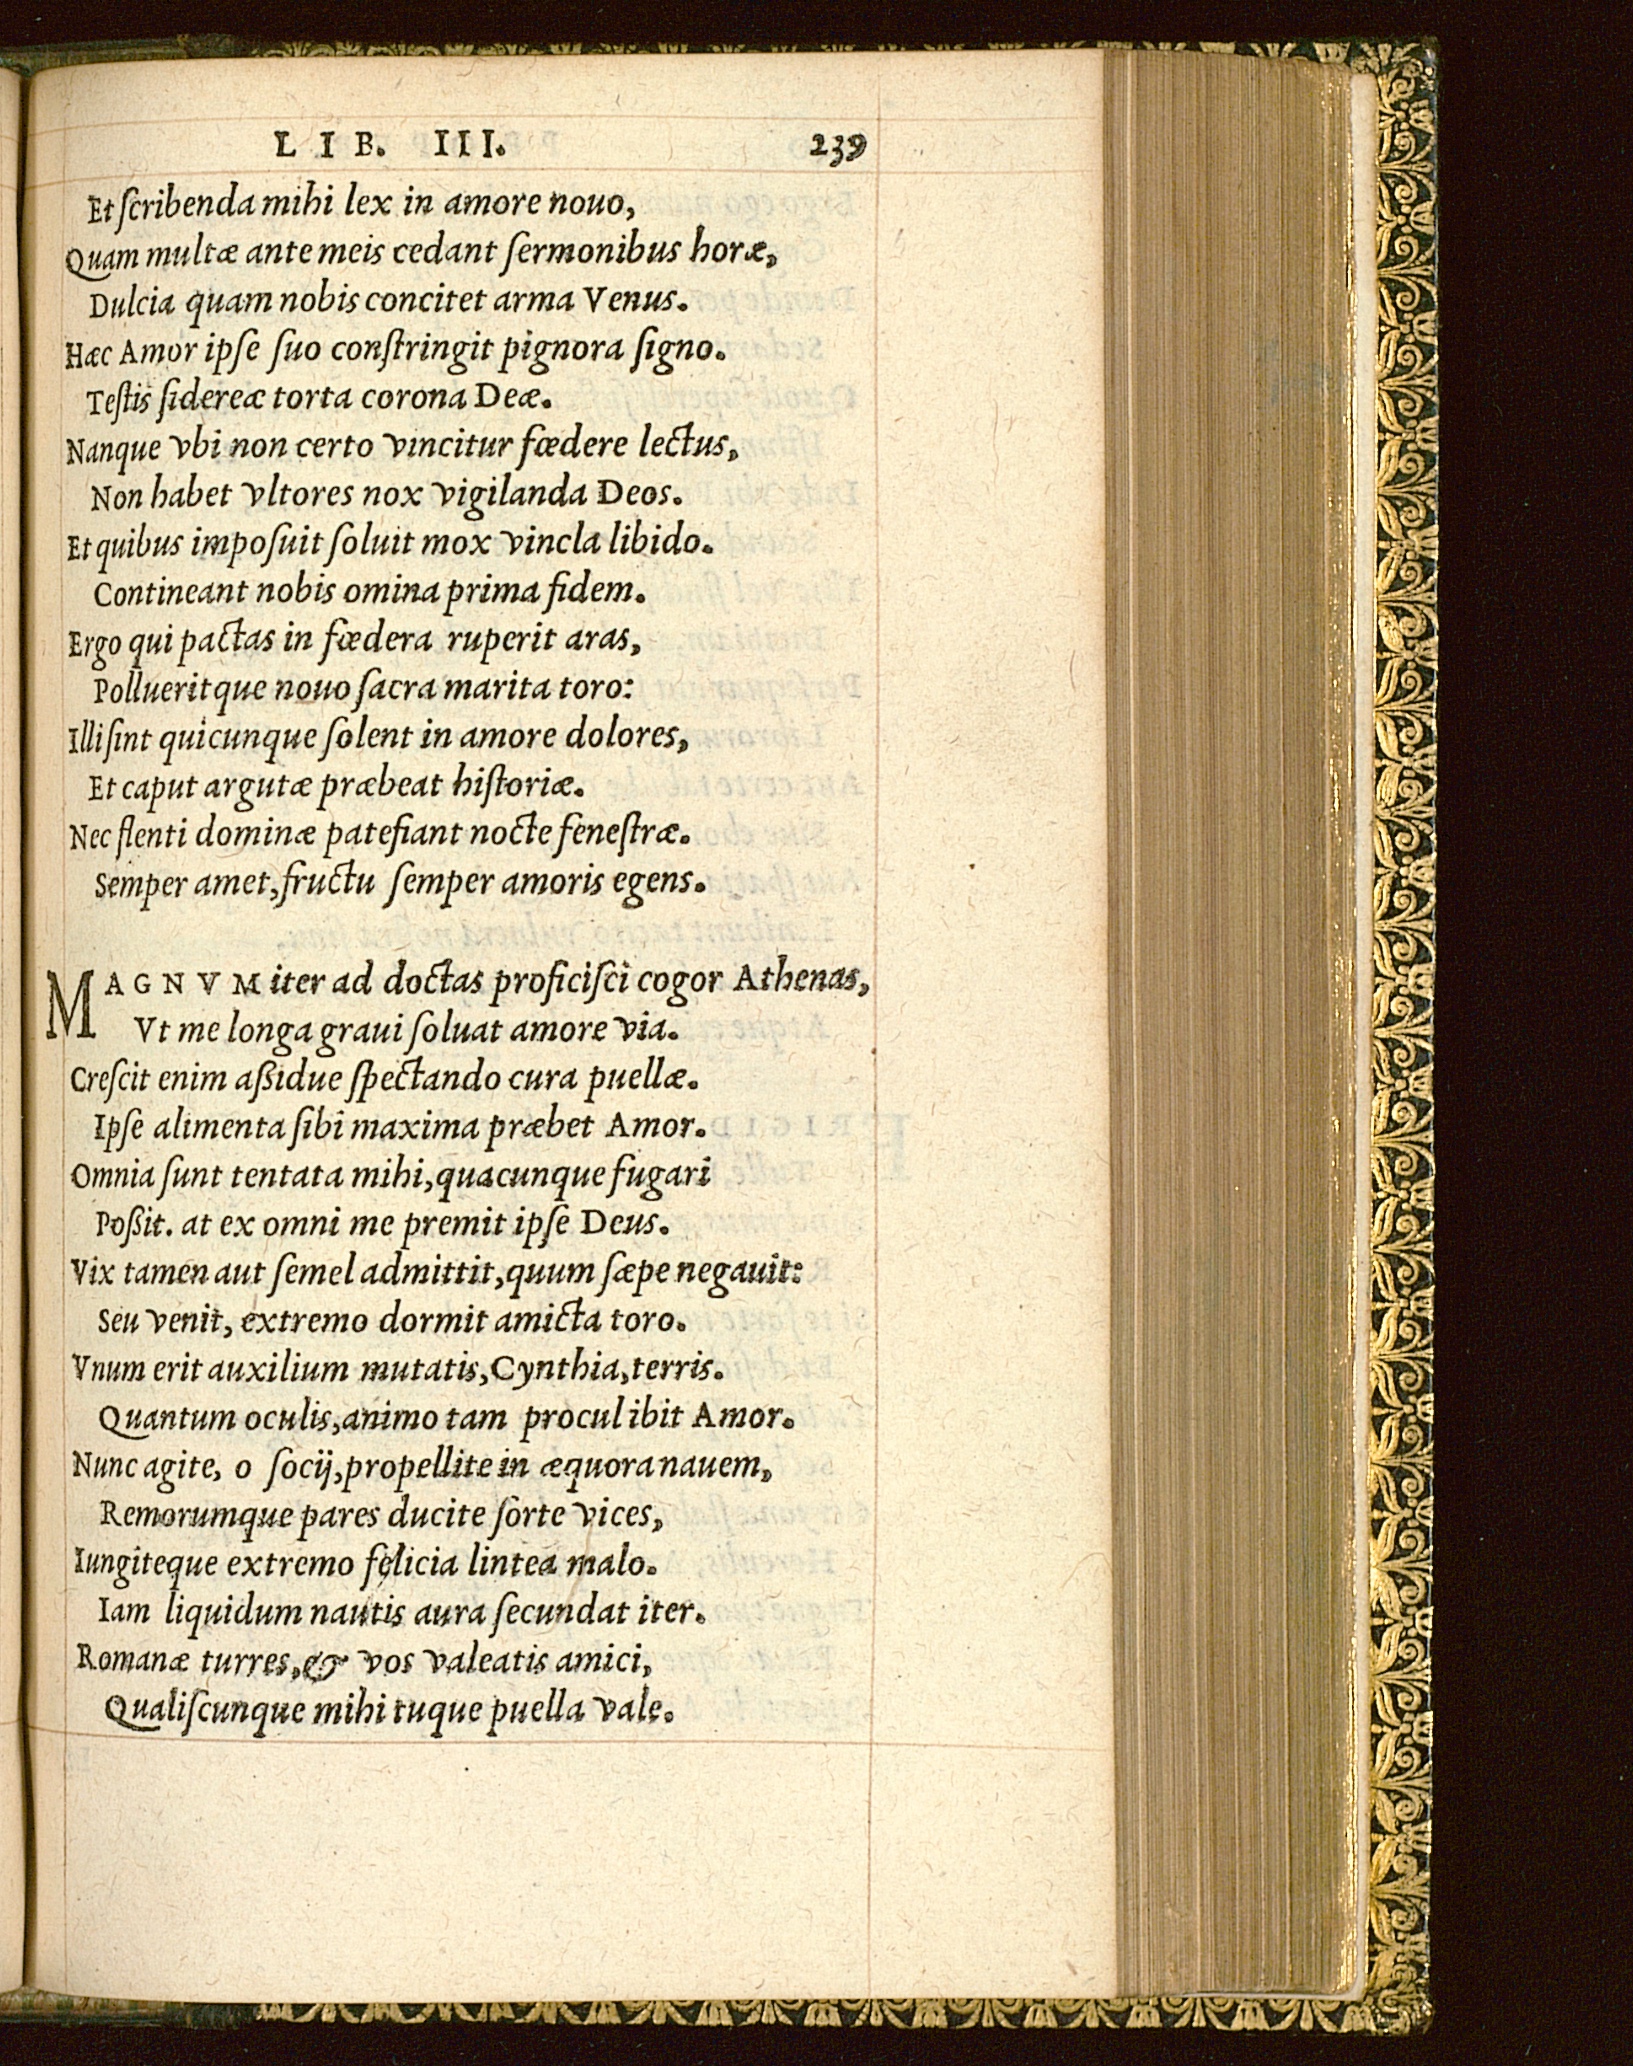 LIB. III. 239
Et ſcribenda mihi lex in amore nouo,
Quam multæ ante meis cedant ſermonibus horæ,
Dulcia quam nobis concitet arma Venus.
Hæc Amor ipſe ſuo conſtringit pignora ſigno.
Teſtis ſidereæ torta corona Deæ.
Nanque vbi non certo vincitur fœdere lectus,
Non habet vltores nox vigilanda Deos.
Et quibus impoſuit ſoluit mox vincla libido.
Contineant nobis omina prima fidem.
Ergo qui pactas in fœdera ruperit aras,
Pollueritque nouo ſacra marita toro:
Illi ſint quicunque ſolent in amore dolores,
Et caput argutæ præbeat hiſtoriæ.
Nec flenti dominæ patefiant nocte feneſtræ.
Semper amet, fructu ſemper amoris egens.
MAGNVM iter ad doctas proficiſci cogor Athenas,
Vt me longa graui ſoluat amore via.
Creſcit enim aßidue ſpectando cura puellæ.
Ipſe alimenta ſibi maxima præbet Amor.
Omnia ſunt tentata mihi, quacunque fugari
Poßit. at ex omni me premit ipſe Deus.
Vix tamen aut ſemel admittit, quum ſæpe negauit:
Seu venit, extremo dormit amicta toro.
Vnum erit auxilium mutatis, Cynthia, terris.
Quantum oculis, animo tam procul ibit Amor.
Nunc agite, o ſocij, propellite in æquora nauem,
Remorumque pares ducite ſorte vices,
Iungiteque extremo felicia lintea malo.
Iam liquidum nautis aura ſecundat iter.
Romanæ turres, & vos valeatis amici,
Qualiſcunque mihi tuque puella vale.